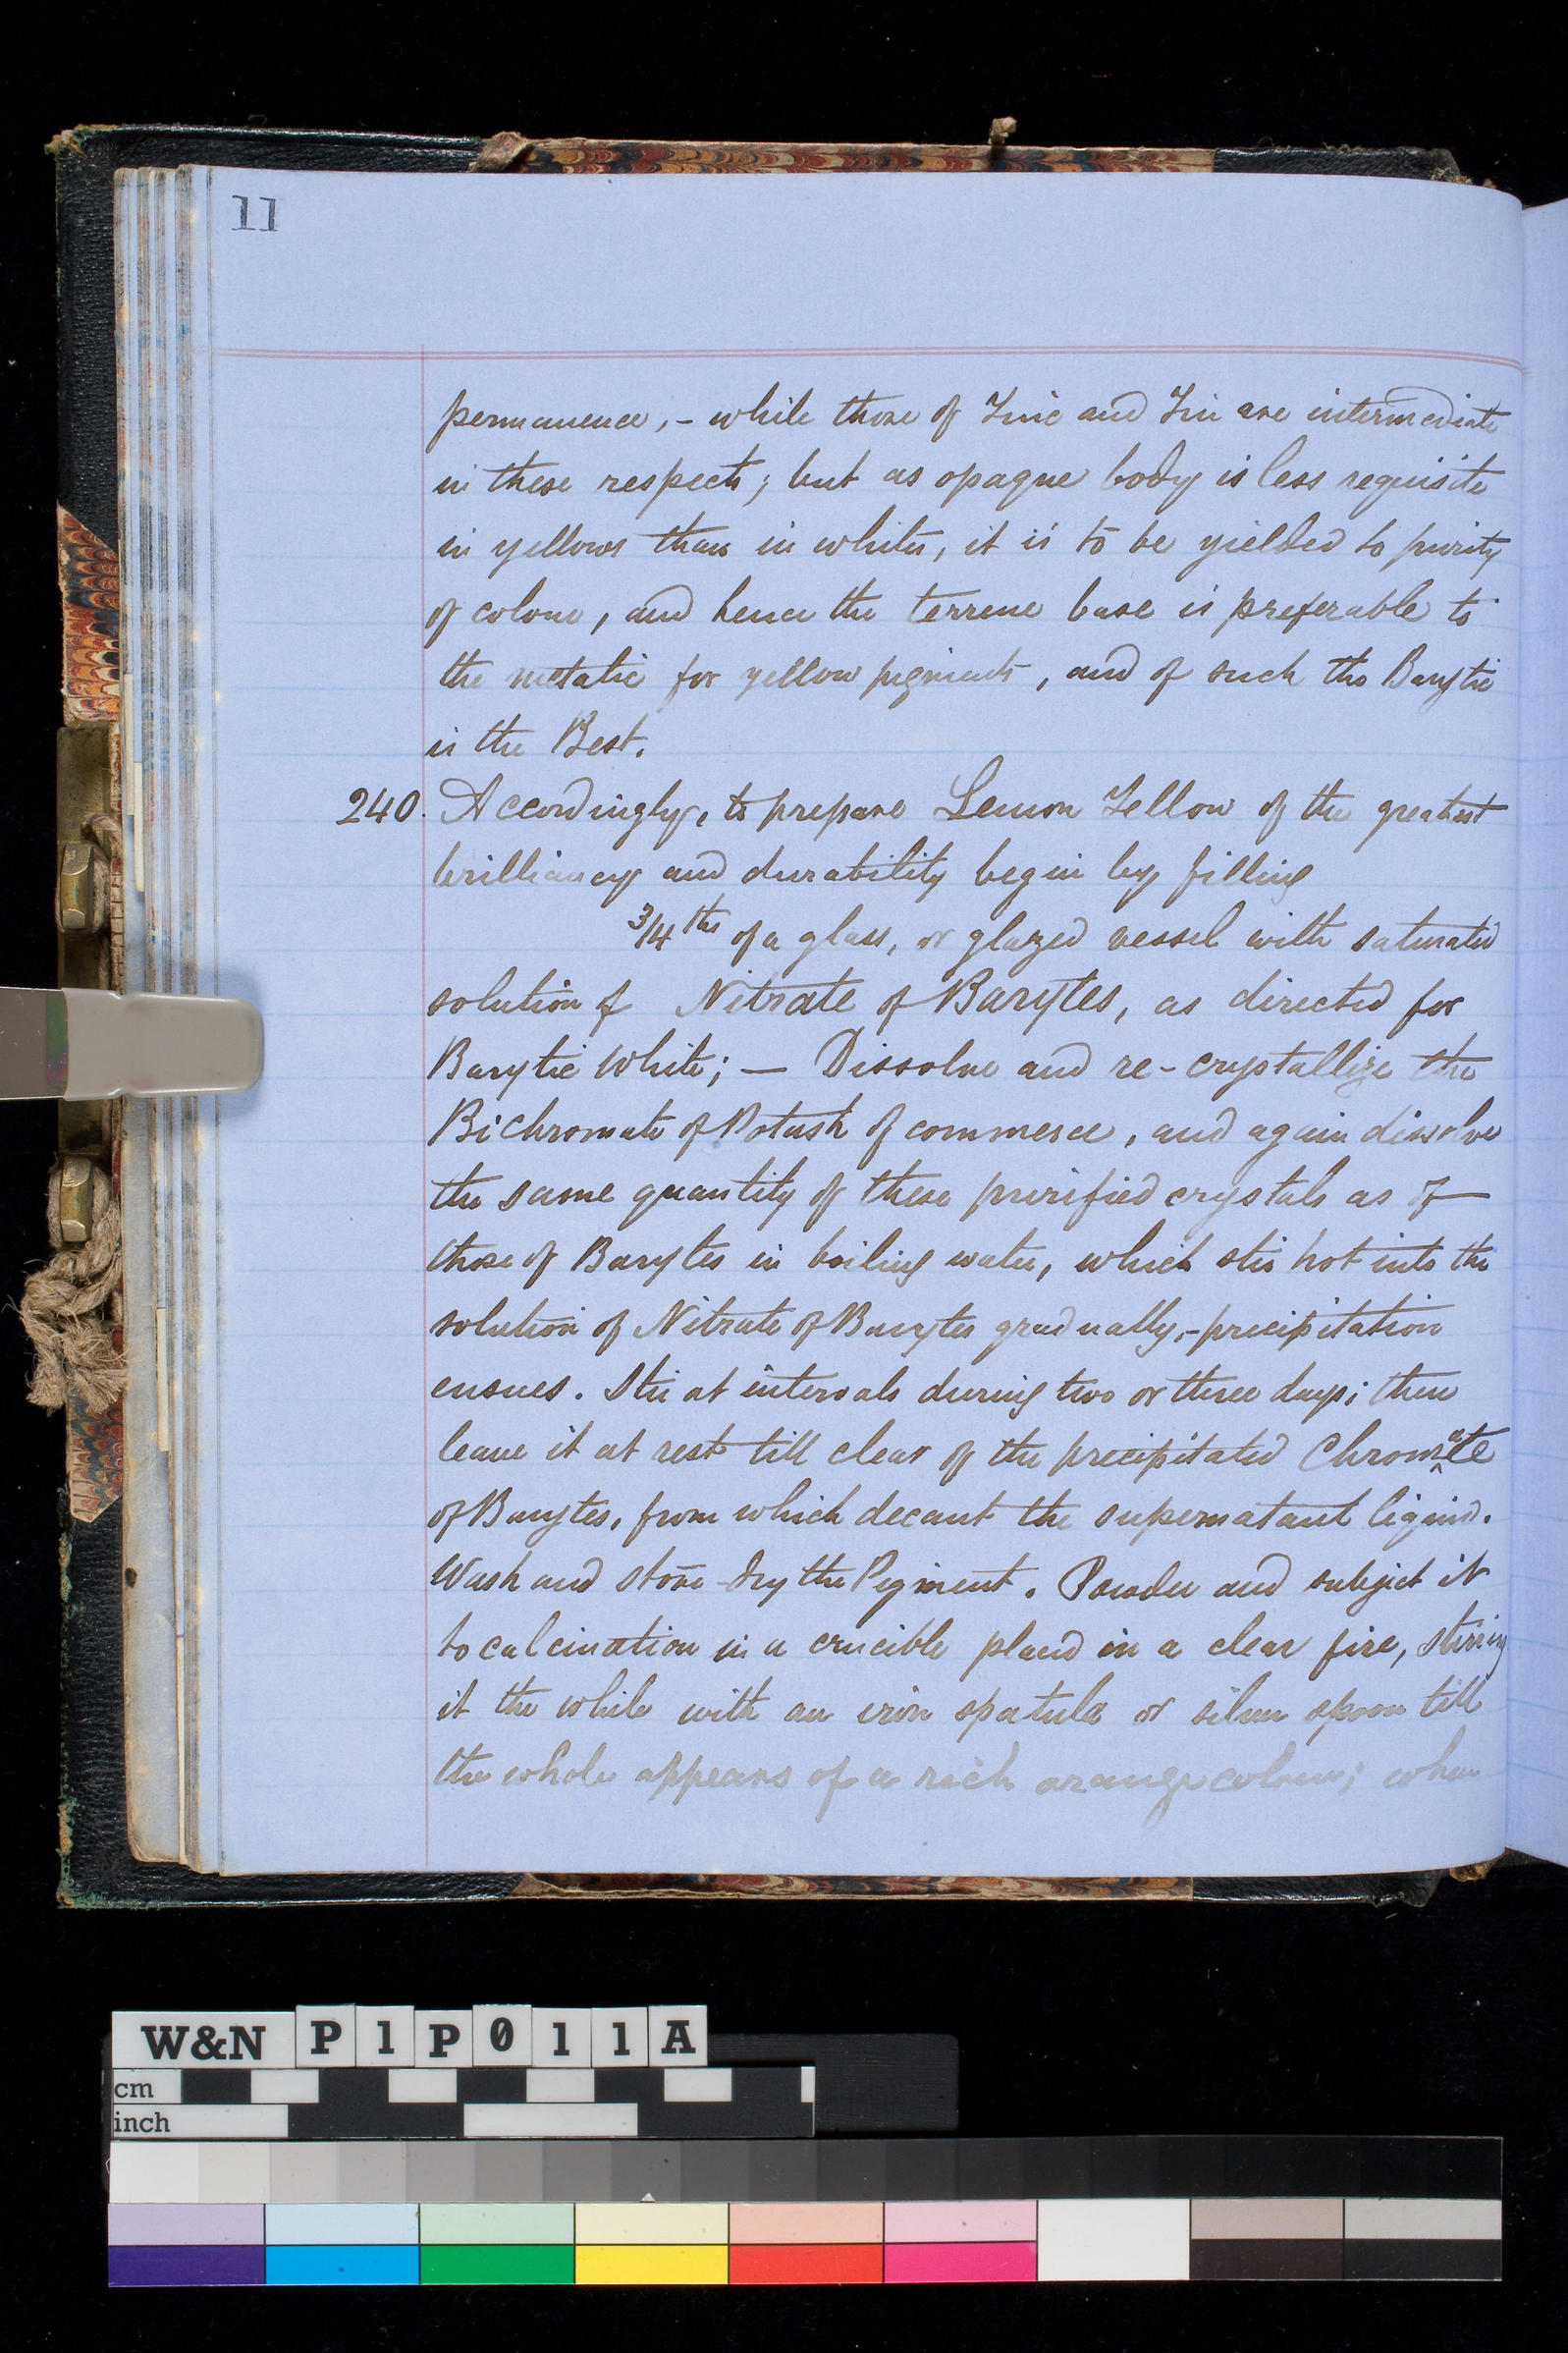 11
permanence, - while those of Zinc and Tin are intermediate
in these respects; but as opaque body is less requisite
in yellows than in whites, it is to be yielded to purity
of colour, and hence the terrene base is preferable to
the metalic for yellow pigments, and of such the Barytic
is the Best.
240. Accordingly, to prepare Lemon Yellow of the greatest
brilliancy and durability begin by filling
3/4ths of a glass, or glazed vessel with saturated
solution of Nitrate of Barytes, as directed for
Barytic White; — Dissolve and re-crystallize the
Bichromate of Potash of commerce, and again dissolve
the same quantity of these purified crystals as of
those of Barytes in boiling water, which stir hot into the
solution of Nitrate of Barytes gradually, - precipitation
ensues. Stir at intervals during two or three days; then
leave it at rest till clear of the precipitated Chromate
of Barytes, from which decant the supernatant liquid.
Wash and stove-dry the Pigment. Powder and subject it
to calcination in a crucible placed in a clear fire, stirring
it the while with an iron spatula or silver spoon till
the whole appears of a rich orange colour; when
W&N P1P011A
cm
inch